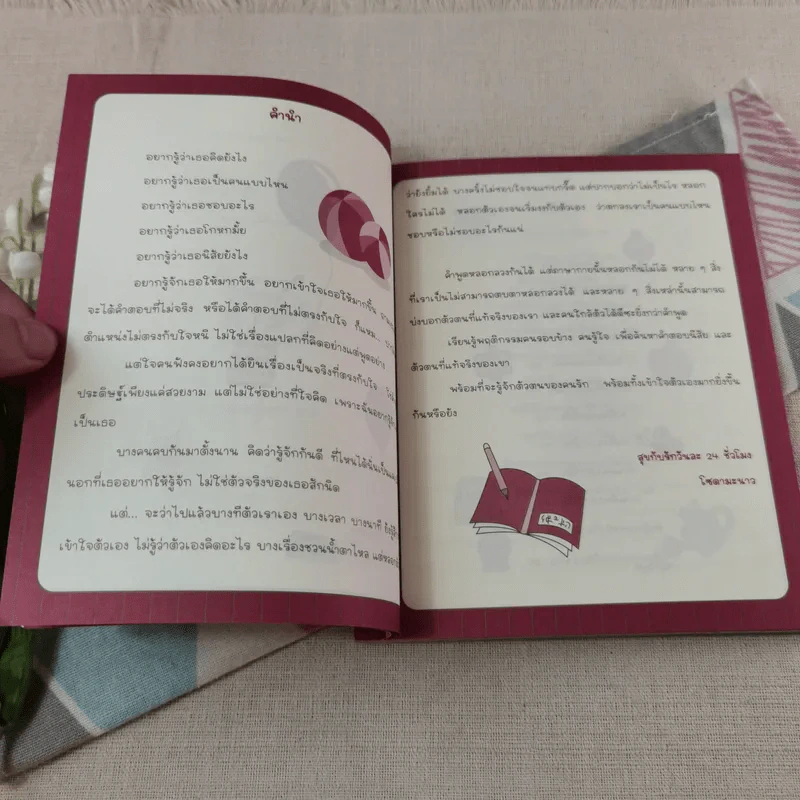 คำนำ
อยากรู้ว่าเธอคิดยังไง
อยากรู้ว่าเธอเป็นคนแบบไหน
อยากรู้ว่าเธอชอบอะไร
อยากรู้ว่าเธอโกหกมั้ย
อยากรู้ว่าเธอนิสัยยังไง
อยากรู้จักเธอให้มากขึ้น อยากเข้าใจเธอให้มากขึ้น
จะได้คำตอบที่ไม่จริง หรือได้คำตอบที่ไม่ตรงกับใจ ก็แหม...
ตำแหน่งไม่ตรงกับใจหนิ ไม่ใช่เรื่องแปลกที่คิดอย่างแต่พูดอย่าง
แต่ใจคนฟังคงอยากได้ยินเรื่องเป็นจริงที่ตรงกับใจ
ประดิษฐ์เพียงแค่สวยงาม แต่ไม่ใช่อย่างที่ใจคิด เพราะฉันอยากรู้
เป็นเธอ
บางคนคบกันมาตั้งนาน คิดว่ารู้จักกันดี ที่ไหนได้นั่นเป็น
นอกที่เธออยากให้รู้จัก ไม่ใช่ตัวจริงของเธอสักนิด
แต่... จะว่าไปแล้วบางทีตัวเราเอง บางเวลา บางนาที
เข้าใจตัวเอง ไม่รู้ว่าตัวเองคิดอะไร บางเรื่องชวนน้ำตาไหล
ว่ายังยิ้มได้ บางครั้งไม่ชอบใจจนแทบกรี๊ด แต่ปากบอกว่าไม่เป็นไร หลอก
ใครไม่ได้ หลอกตัวเองจนเริ่มงงกับตัวเอง ว่าตกลงเราเป็นคนแบบไหน
ชอบหรือไม่ชอบอะไรกันแน่
คำพูดหลอกลวงกันได้ แต่ภาษากายนั้นหลอกกันไม่ได้ หลาย ๆ สิ่ง
ที่เราเป็นไม่สามารถตบตาหลอกลวงได้ และหลาย ๆ สิ่งเหล่านั้นสามารถ
บ่งบอกตัวตนที่แท้จริงของเรา และคนใกล้ตัวได้ดีซะยิ่งกว่าคำพูด
เรียนรู้พฤติกรรมคนรอบข้าง คนรู้ใจ เพื่อค้นหาคำตอบนิสัย และ
ตัวตนที่แท้จริงของเขา
พร้อมที่จะรู้จักตัวตนของคนรัก พร้อมทั้งเข้าใจตัวเองมากยิ่งขึ้น
กันหรือยัง
สุขกับรักวันละ 24 ชั่วโมง
โซดามะนาว